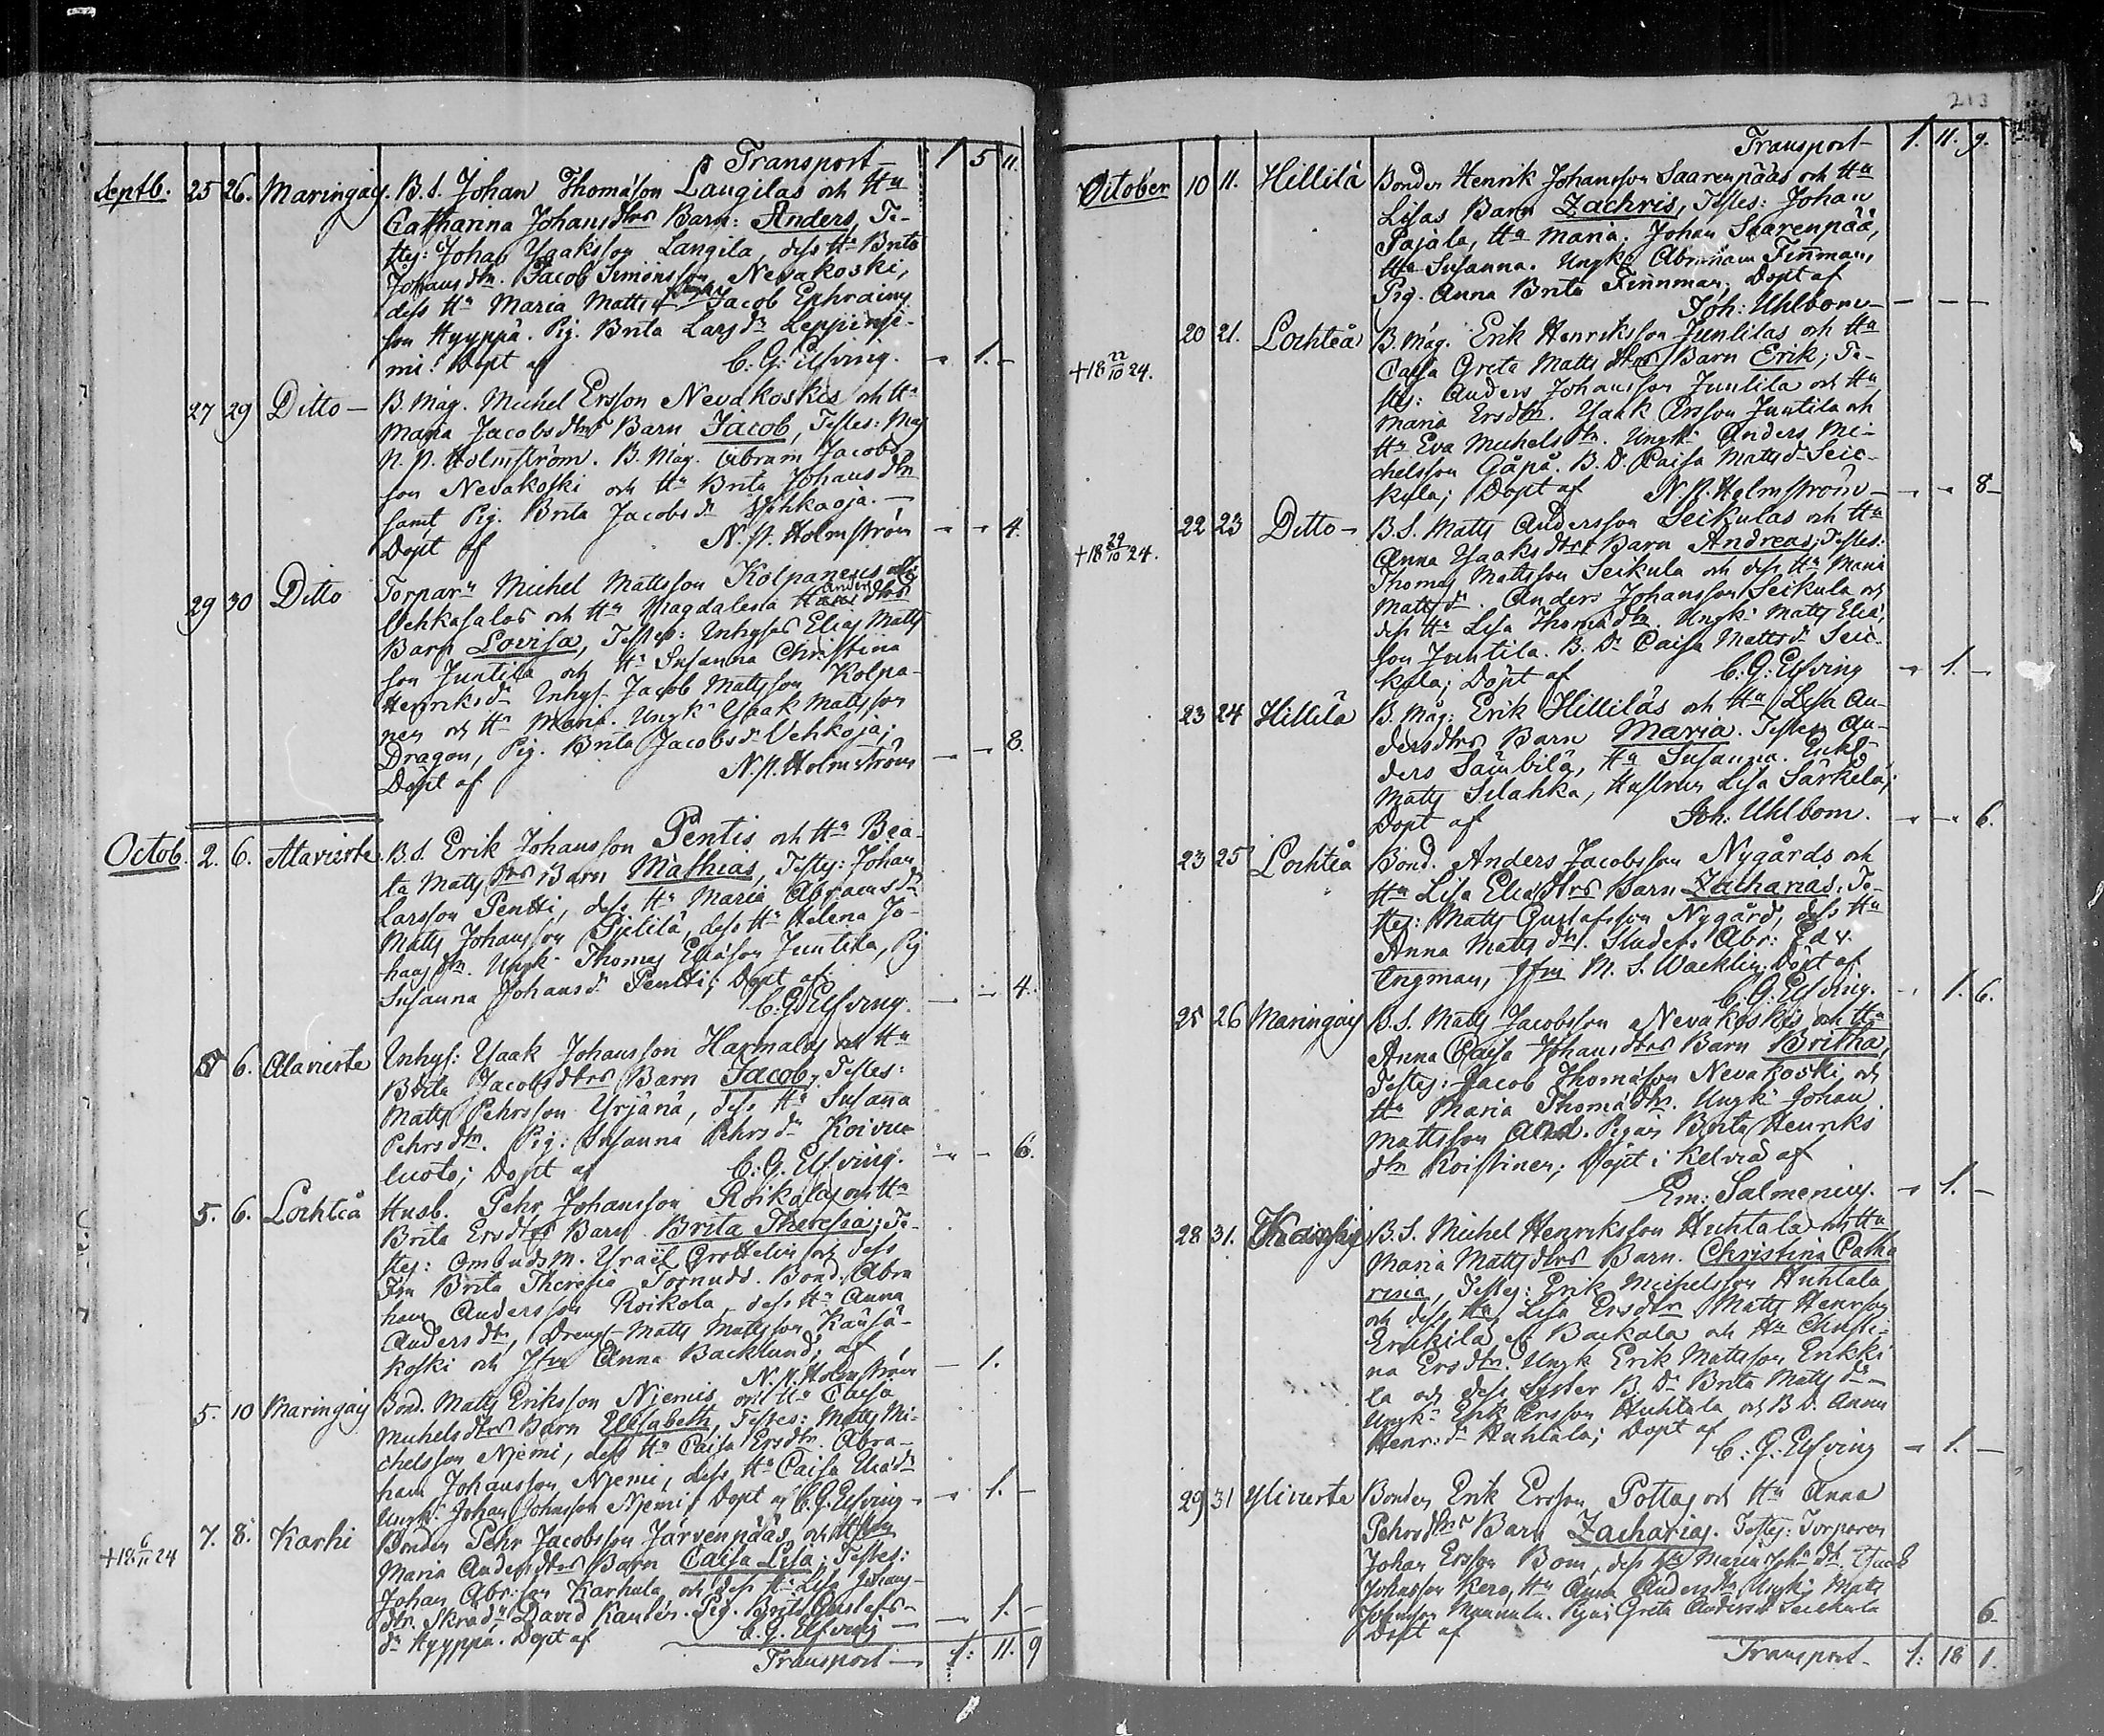 Transport — 1 5 11.
Septb. 25 26. Maringais. B.S. Johan Thomason Laugilas och Hu
Catharina Johansdtrs Barn: Anders, Te-
stes: Johan Ysaksson Laugila, dess Hu Brita
Johansdtr. Jacob Simonsson Nevakoski,
dess Hu Maria Mattsdtr. Jacob Ephraims
son Hyyppä. Pig. Brita Larsdr Leppinie-
mi: Dopt af C. G: Elfving. — 1. —
27 29 Ditto — B. Måg. Michel Ersson Nevakoskis och Hu
Maria Jacobsdtrs Barn Jacob, Testes: Mag
N. P. Holmström. B. Måg. Abram Jacobs
son Nevakoski och Hu Brita Johansdtr
samt Pig. Brita Jacobsdr Vehkaoja. —
Dopt af N. P. Holmström — — 4.
29 30 Ditto Torparn Michel Mattsson Kolpanens eller
Vehkasalos och Hu Magdalena Anders dtrs
Barn Lovisa, Testes: Inhyses Elias Matts
son Juntila och Hu Susanna Christina
Henriksdr Inhys. Jacob Mattsson Kolpa-
nen och Hu Maria. Ungk. Ysaak Mattsson
Dragon, Pig. Brita Jacobsdr Vehkoja;
Dopt af N. P. Holmström — — 8.
Octob. 2. 6. Alavierte. B.S. Erik Johansson Pentis och Hu Bea-
ta Mattsdtrs Barn Mathias, Testes: Johan
Larsson Pentti, dess Hu Maria Abramsdr
Matts Johansson Pjelilä, dess Hu Helena Jo-
hansdtr. Ungk. Thomas Eliason Juntila, Pig
Susanna Johansdr Pentti; Dopt af
C. G. Elfving. — — 4.
5 6. Alavierte Inhys: Ysaak Johansson Harmalas och Hu
Brita Jacobsdtrs Barn Jacob, Testes:
Matts Pehrsson Yrjänä, dess Hu Susana
Pehrsdtr. Pig: Susanna Pehrsdr Koivu-
luoto; Dopt af C. G. Elfving. — — 6.
5. 6. Lochteå Husb. Pehr Johansson Roikolas och Hu
Brita Ersdtrs Barn Brita Theresia; Te-
stes: Ombudsm. Ysrael Grottelin och dess
Fru Brita Theresia Tornudd. Bond. Abra
ham Andersson Roikola, dess Hu Anna
Andersdtr, Dreng. Matts Mattsson Känsä-
koski och Jfru Anna Backlund; af
N. P. Holmström — 1.
5. 10 Maringais Bond. Matts Eriksson Niemis och Hu Caisa
Michelsdtrs Barn Elisabeth, Testes: Matts Mi-
chelsson Njemi, dess Hu Caisa Ersdtr. Abra-
ham Johansson Njemi, dess Hu Caisa
Ungk: Johan Johnsson Njemi; Dopt af C. G. Elfving — — 1. —
+ 18 6/11 24 7. 8. Karhi Bonden Pehr Jacobsson Järvenpääs och
Maria Andersdtrs Barn Caisa Lisa; Testes:
Johan Abr:son Karhula och dess Hu Lisa Johans-
dtr. Skrädn. David Kantén. Pig. Brita Gustafs-
dr Hyyppä. Dopt af C. G. Elfving — 1. —
Transport — 1: 11. 9
213
Transport — 1. 11. 9.
October 10 11. Hillilä Bonden Henrik Johansson Saarenpääs och Hu
Lisas Barn Zachris, Testes: Johan
Pajala, Hu Maria. Johan Saarenpää,
Hu Susanna. Ungk. Abraham Finnman,
Pig. Anna Brita Finnman; Dopt af
Joh: Uhlbom — — — —
20 21. Lochteå B. Måg. Erik Henriksson Juntilas och Hu
+ 18 22/10 24. Caisa Greta Mattsdtrs Barn Erik; Te-
stes: Anders Johansson Juntila och Hu
Maria Ersdtr. Ysaak Ersson Juntila och
Hu Eva Michelsdtr. Ungk. Anders Mi-
chelsson Gåpå. B. D. Caisa Mattsdr Seic-
kula; Dopt af N. P. Holmström — — — 8 —
22 23 Ditto — B.S. Matts Andersson Seikulas och Hu
+ 18 29/10 24. Anna Ysaksdtrs Barn Andreas; Testes:
Thomas Mattsson Seikula och dess Hu Maria
Mattsdr. Anders Johansson Seikula och
dess Hu Lisa Thomadtr. Ungk. Matts Elia
son Juntila. B. Dr Caisa Mattsdr Seic-
kula; Dopt af C. G. Elfving — 1. —
23 24 Hillilä B. Måg: Erik Hilliläs och Hu Lisa An-
dersdtrs Barn Maria. Testes An-
ders Sämbilä, Hu Susanna.
Matts Silahka, Hustrun Lisa Särkelä;
Dopt af Joh. Uhlbom. — — 6.
23 25 Lochteå Bond. Anders Jacobsson Nygårds och
Hu Lisa Eliadtrs Barn Zacharias. Te-
stes: Matts Gustafsson Nygård, dess Hu
Anna Mattsdtr. Studer. Abr: Edv.
Engman, Jfru M. S. Wacklin. Dopt af
C. G. Elfving. — 1. 6.
25 26 Maringais B.S. Matts Jacobsson Nevakoskis och Hu
Anna Caisa Johansdtrs Barn Britha,
Testes: Jacob Thomason Nevakoski och
Hu Maria Thomadtr. Ungk. Johan
Mattsson . Pigan Brita Henriks
dtr Koistinen; Dopt i Kelviå af
Em: Salmenius. — 1. —
28 31. B.S. Michel Henriksson Huhtala och Hu
Maria Mattsdtrs Barn. Christina Catha
rina, Testes: Erik Michelsson Huhtala
och dess Hu Lisa Ersdtr Matts Henrson
Erickilä Backala och Hu Christi-
na Ersdtr. Ungk Erik Mattsson Erikki
la och dess Syster B. Dr Brita Mattsdr —
Ungk. Erik Ersson Huhtala och B D. Anna
Henr: dr Huhtala; Dopt af
C. G. Elfving — 1. —
29 31 Ylivierte Bonden Erik Ersson Pottas och Hu Anna
Pehrsdtrs Barn Zacharias. Testes: Torparen
Johan Ersson Bom, dess Hu Maria Joh: dtr
Johnsson Kero, Hu Anna Andersdtr Ungk. Matts
Johansson . Pigan Greta Andersdr Seickula
Dopt af 6.
Transport — 1: 18 1.